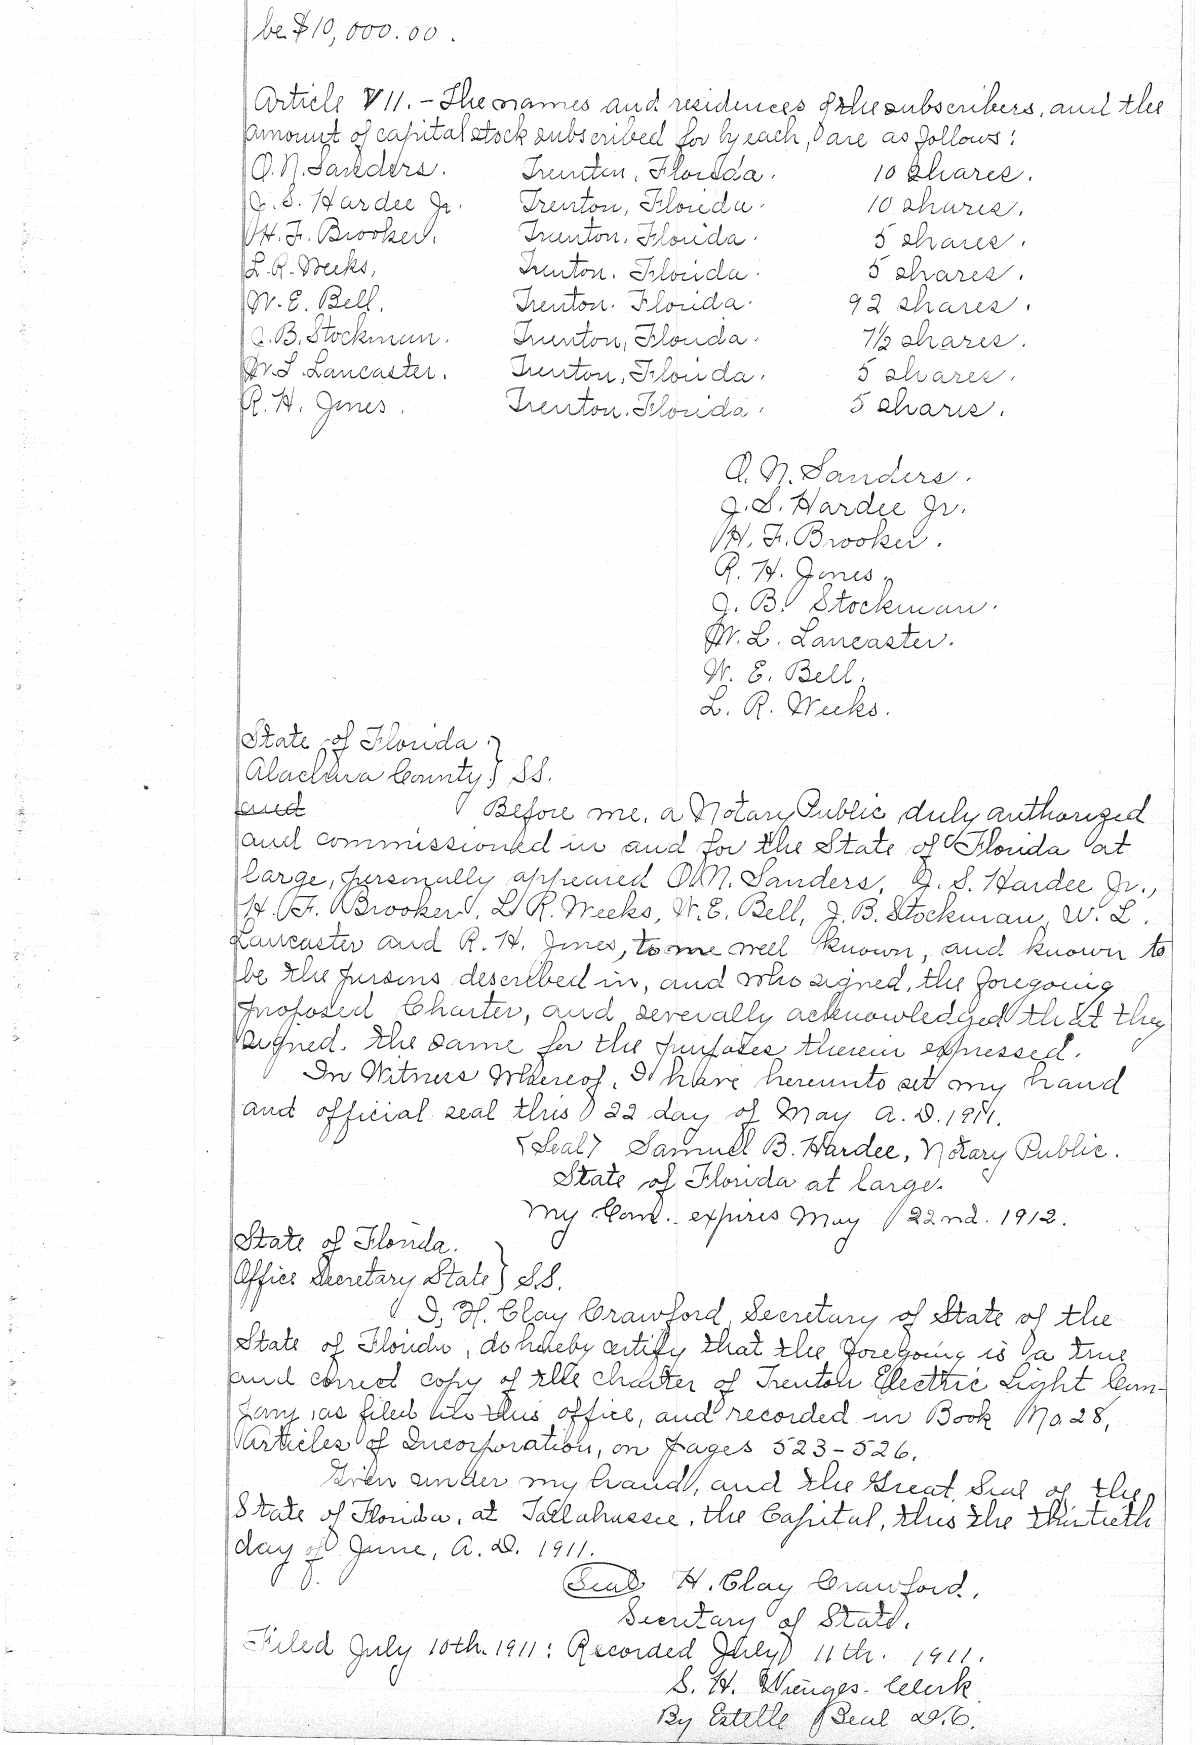 be $10,000.00.
Article VII. - The names and residences of the subscribers, and the
amount of capital stock subscribed for by each, are as follows:
O. N. Sanders. Trenton, Florida. 10 shares.
J. S. Hardee Jr. Trenton, Florida. 10 shares.
H. F. Brooker. Trenton, Florida. 5 shares.
L. R. Weeks, Trenton, Florida. 5 shares.
W. E. Bell. Trenton. Florida. 92 shares.
J. B. Stockman. Trenton, Florida. 7½ shares.
W. L. Lancaster. Trenton, Florida. 5 shares.
R. H. Jones. Trenton, Florida. 5 shares.
O. N. Sanders.
J. S. Hardee Jr.
H. F. Brooker.
R. H. Jones.
J. B. Stockman.
W. L. Lancaster.
W. E. Bell.
L. R. Weeks.
State of Florida }
Alachua County } SS.
and Before me, a Notary Public duly authorized
and commissioned in and for the State of Florida at
large, personally appeared O. N. Sanders, J. S. Hardee Jr.,
H. F. Brooker, L. R. Weeks, W. E. Bell, J. B. Stockman, W. L.
Lancaster and R. H. Jones, to me well known, and known to
be the persons described in, and who signed, the foregoing
proposed Charter, and severally acknowledged that they
signed. the same for the purposes therein expressed.
In Witness Whereof, I have hereunto set my hand
and official seal this 22 day of May A. D. 1911.
<Seal> Samuel B. Hardee, Notary Public.
State of Florida at large.
My Com. expires May 22nd. 1912.
State of Florida. }
Office Secretary State } SS.
I, H. Clay Crawford, Secretary of State of the
State of Florida, do hereby certify that the foregoing is a true
and correct copy of the charter of Trenton Electric Light Com-
pany, as filed in this office, and recorded in Book No. 28,
Articles of Incorporation, on pages 523-526.
Given under my hand, and the Great Seal of the
State of Florida, at Tallahassee, the Capital, this the thirtieth
day of June, A. D. 1911.
Seal H. Clay Crawford,
Secretary of State.
Filed July 10th. 1911: Recorded July 11th. 1911.
S. H. Wienges. Clerk
By Estelle Beal D.C.